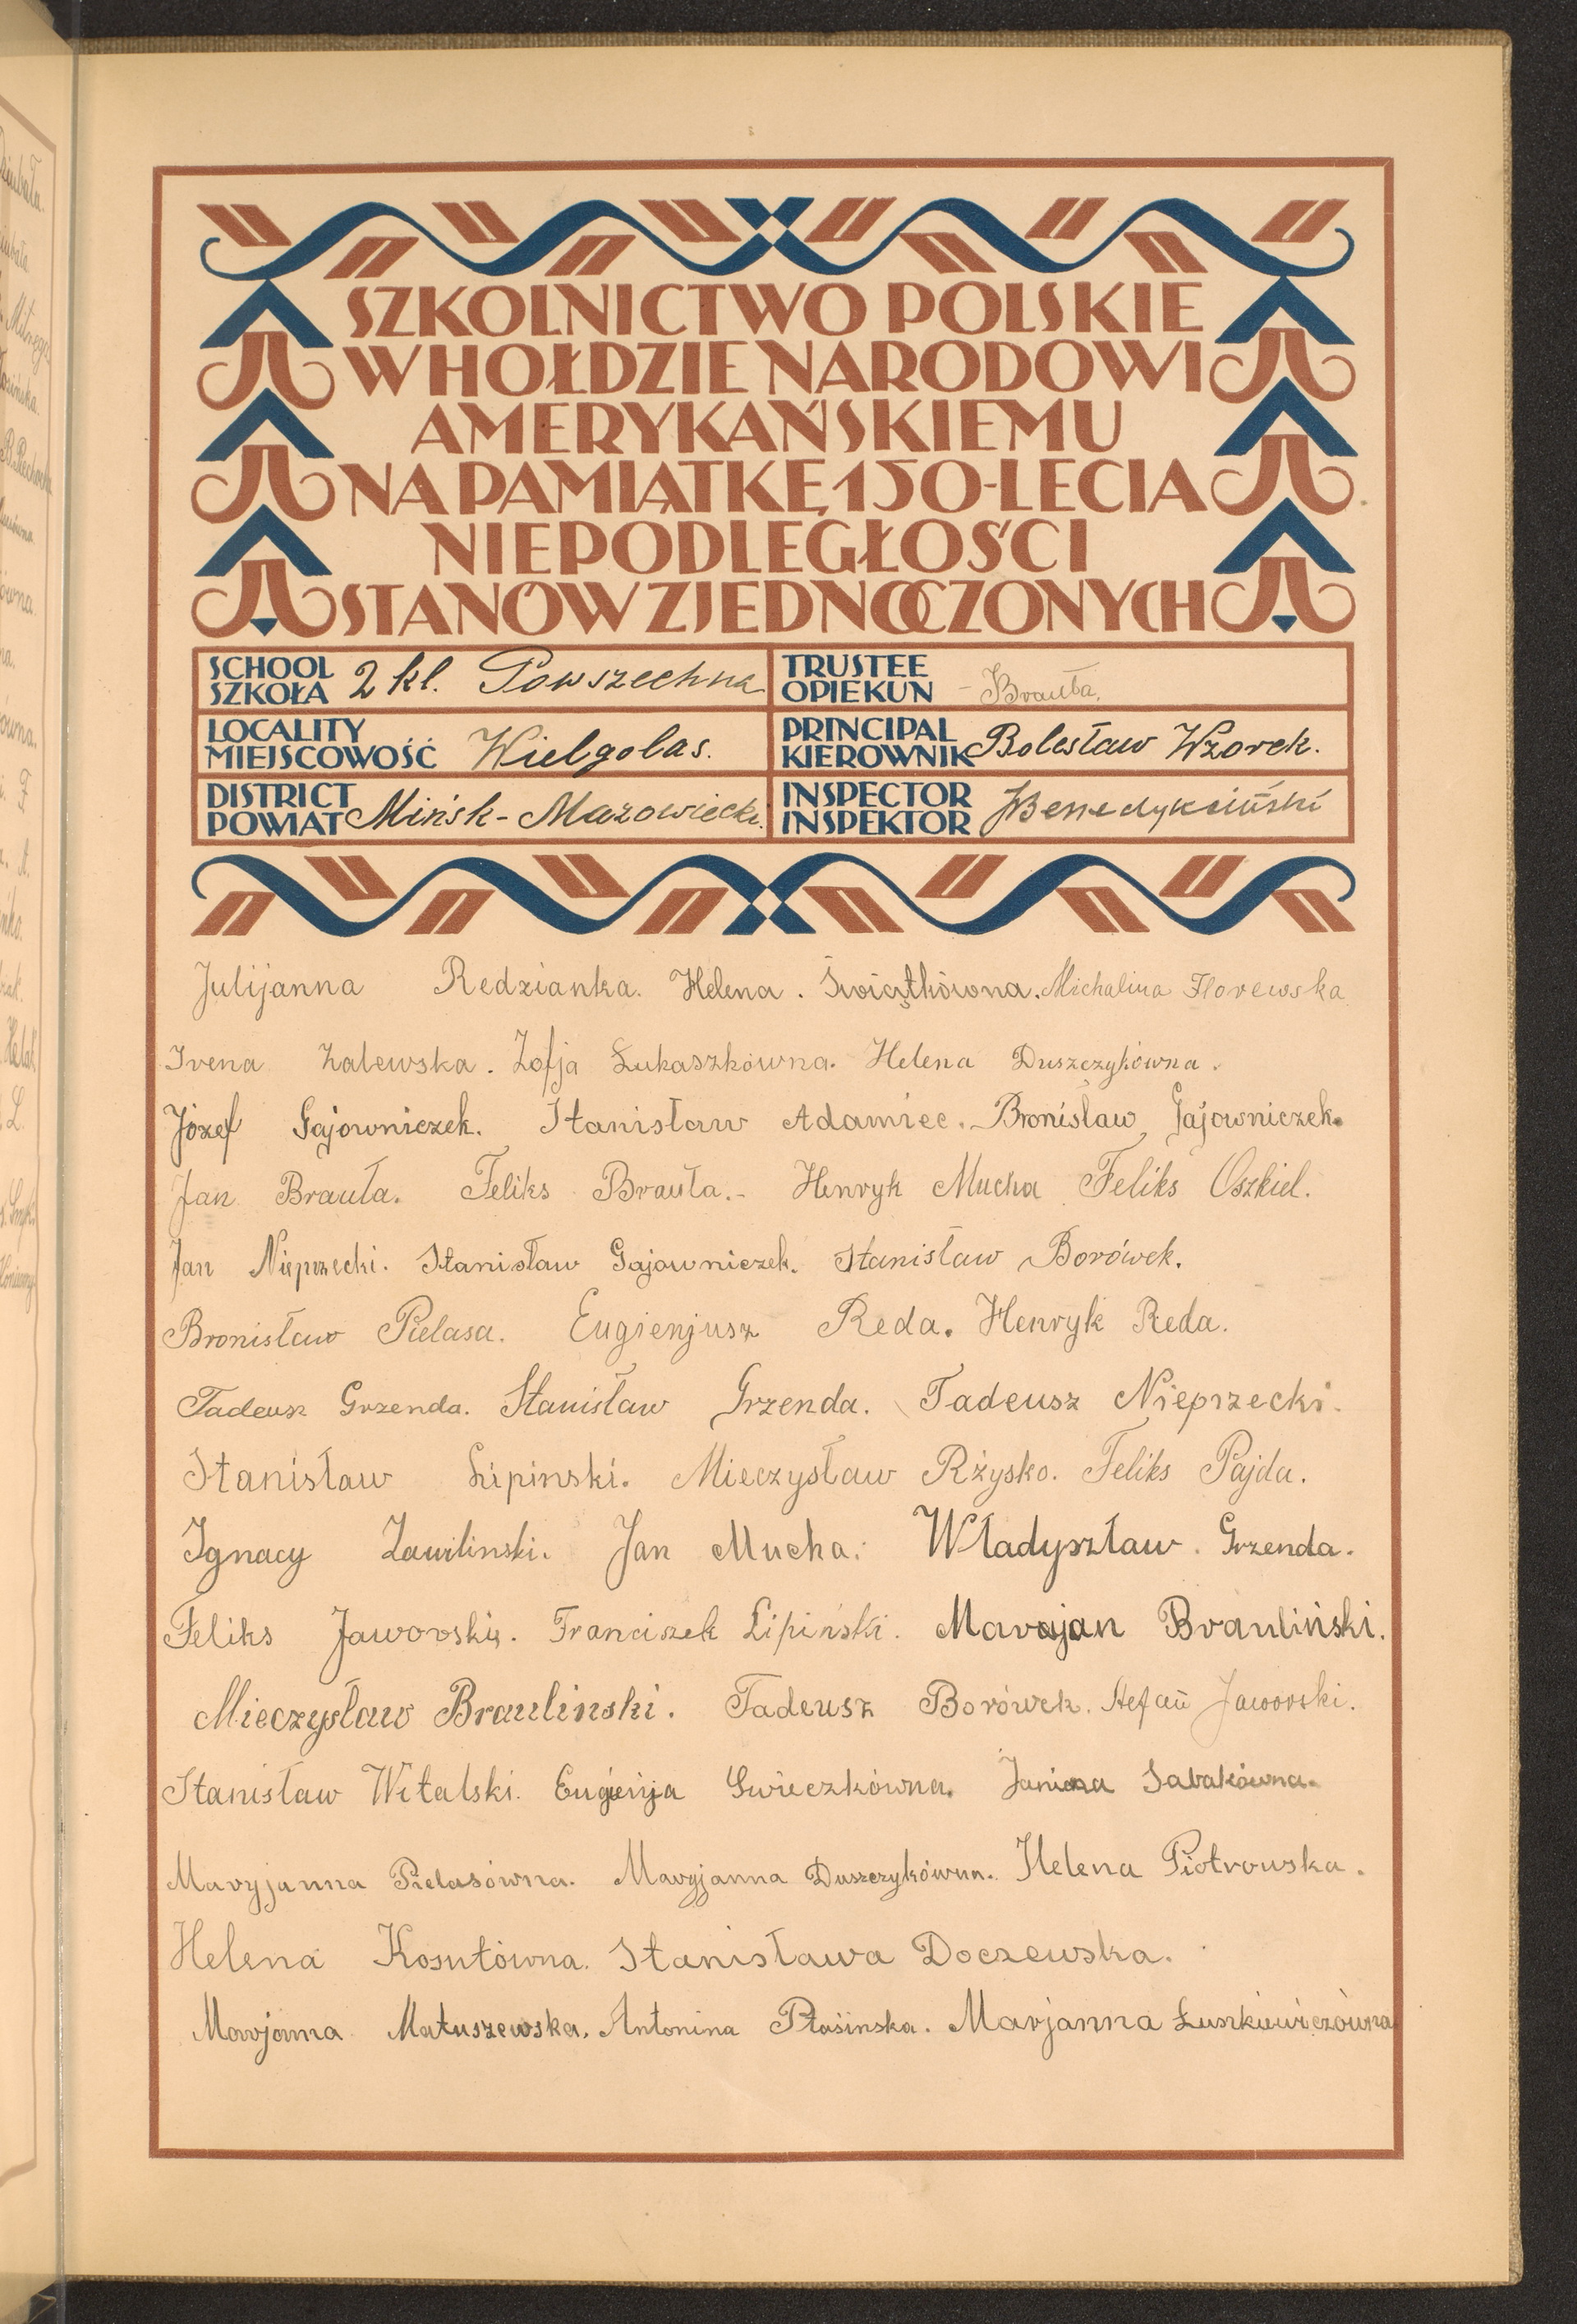 SZKOLNICTWO POLSKIE
W HOŁDZIE NARODOWI
AMERYKAŃSKIEMU
NA PAMIĄTKĘ 150-LECIA
NIEPODLEGŁOŚCI
STANÓW ZJEDNOCZONYCH
SCHOOL
SZKOŁA 2 kl. Powszechna
TRUSTEE
OPIEKUN - Brauła.
LOCALITY
MIEJSCOWOŚĆ Wielgolas.
PRINCIPAL
KIEROWNIK Bolesław Wzorek.
DISTRICT
POWIAT Mińsk-Mazowiecki.
INSPECTOR
INSPEKTOR JBenedykciński
Julijanna Redzianka. Helena. Świątkówna. Michalina Florewska
Irena Zalewska. Zofja Łukaszkówna. Helena Duszczykówna.
Józef Gajowniczek. Stanisław Adamiec. Bronisław Gajowniczek.
Jan Brauła. Feliks Brauła.- Henryk Mucha Feliks Oszkiel.
Jan Nieprzecki. Stanisław Gajowniczek. Stanisław Borówek.
Bronisław Pielasa. Eugienjusz Reda. Henryk Reda.
Tadeusz Grzenda. Stanisław Grzenda. Tadeusz Nieprzecki.
Stanisław Lipinski. Mieczysław Rżysko. Feliks Pajda.
Ignacy Zawilinski. Jan Mucha. Władyszław. Grzenda.
Feliks Jaworski. Franciszek Lipiński. Marjan Brauliński.
Mieczysław Braulinski. Tadeusz Borówek. Stefan Jaworski.
Stanisław Witalski. Eugienja Gwieczkówna. Janina Sabakówna.
Maryjanna Pielasówna. Maryjanna Duszczykówna. Helena Piotrowska.
Helena Kosutówna. Stanisława Doczewska.
Marjanna Matuszewska. Antonina Ptasinska. Marjanna Łuszkiewiczówna